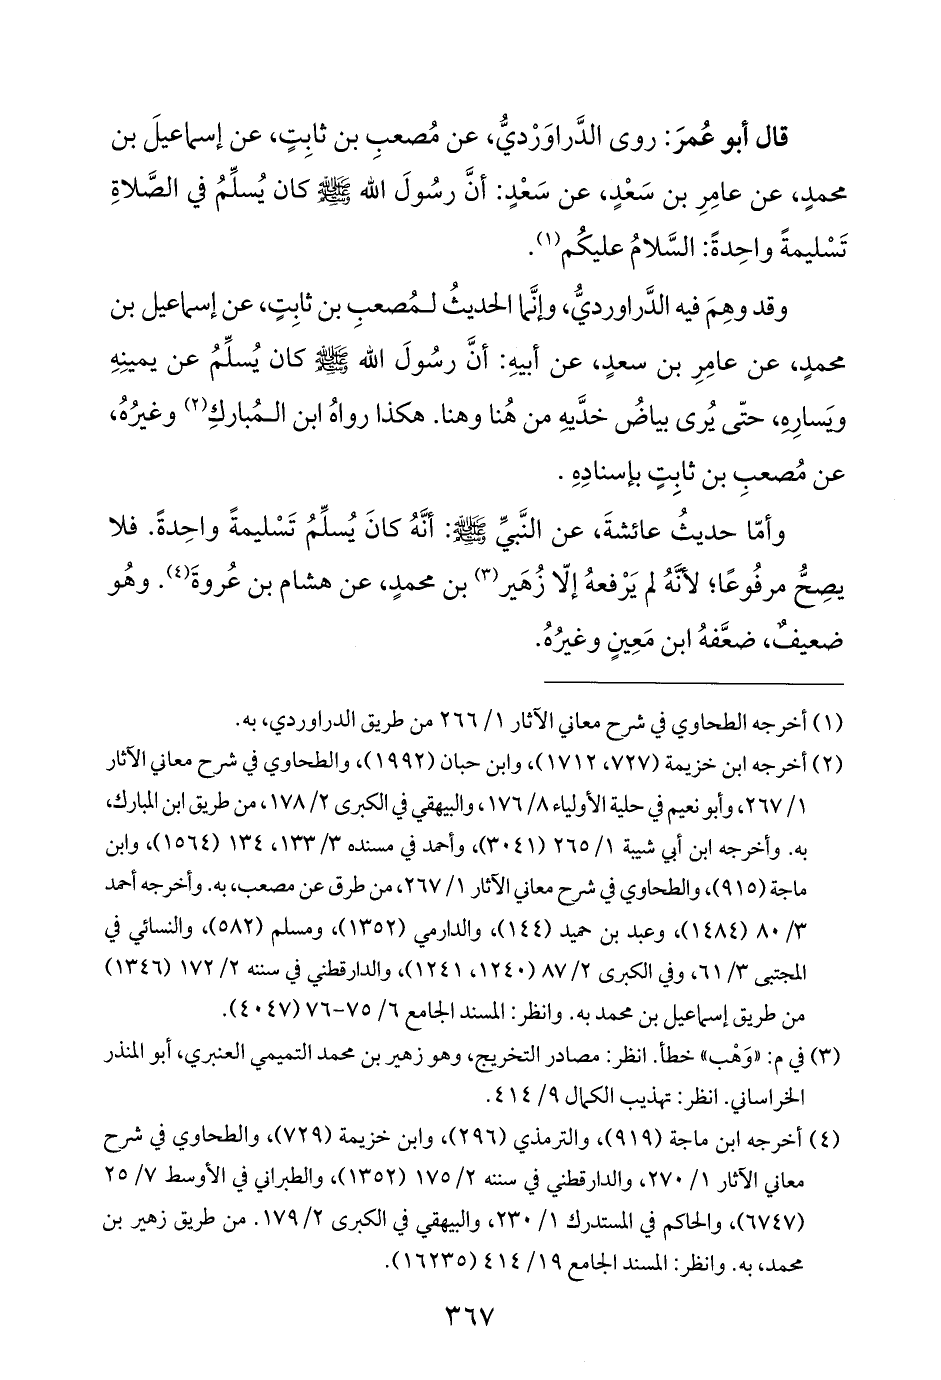 قال أبو عُمرَ: روى الدَّراوَرْديُّ، عن مُصعبِ بن ثابِتٍ، عن إسماعيلَ بن
محمدٍ، عن عامِرِ بن سَعْدٍ، عن سَعْدٍ: أنَّ رسُولَ الله ﷺ كان يُسلِّمُ في الصَّلاةِ
تَسْليمةً واحِدةً: السَّلامُ عليكُم(١).
وقد وهِمَ فيه الدَّراورديُّ، وإنَّما الحديثُ لـمُصعبِ بن ثابِتٍ، عن إسماعيل بن
محمدٍ، عن عامِرِ بن سعدٍ، عن أبيهِ: أنَّ رسُولَ الله ﷺ كان يُسلِّمُ عن يمينِهِ
ويَسارِهِ، حتّى يُرى بياضُ خدَّيهِ من هُنا وهنا. هكذا رواهُ ابن الـمُباركِ(٢) وغيرُهُ،
عن مُصعبِ بن ثابِتٍ بإسنادِهِ .
وأمّا حديثُ عائشةَ، عن النَّبيِّ ﷺ: أنَّهُ كانَ يُسلِّمُ تَسْليمةً واحِدةً. فلا
يصِحُّ مرفُوعًا؛ لأنَّهُ لم يَرْفعهُ إلّا زُهَير(٣) بن محمدٍ، عن هشام بن عُروةَ(٤). وهُو
ضعيفٌ، ضعَّفهُ ابن مَعينٍ وغيرُهُ.
(١) أخرجه الطحاوي في شرح معاني الآثار ١/ ٢٦٦ من طريق الدراوردي، به.
(٢) أخرجه ابن خزيمة (٧٢٧، ١٧١٢)، وابن حبان (١٩٩٢)، والطحاوي في شرح معاني الآثار
١/ ٢٦٧، وأبو نعيم في حلية الأولياء ٨/ ١٧٦، والبيهقي في الكبرى ٢/ ١٧٨، من طريق ابن المبارك،
به. وأخرجه ابن أبي شيبة ١/ ٢٦٥ (٣٠٤١)، وأحمد في مسنده ٣/ ١٣٣، ١٣٤ (١٥٦٤)، وابن
ماجة (٩١٥)، والطحاوي في شرح معاني الآثار ١/ ٢٦٧، من طرق عن مصعب، به. وأخرجه أحمد
٣/ ٨٠ (١٤٨٤)، وعبد بن حميد (١٤٤)، والدارمي (١٣٥٢)، ومسلم (٥٨٢)، والنسائي في
المجتبى ٣/ ٦١، وفي الكبرى ٢/ ٨٧ (١٢٤٠، ١٢٤١)، والدارقطني في سننه ٢/ ١٧٢ (١٣٤٦)
من طريق إسماعيل بن محمد به. وانظر: المسند الجامع ٦/ ٧٥-٧٦ (٤٠٤٧).
(٣) في م: «وَهْب» خطأ. انظر: مصادر التخريج، وهو زهير بن محمد التميمي العنبري، أبو المنذر
الخراساني. انظر: تهذيب الكمال ٩/ ٤١٤.
(٤) أخرجه ابن ماجة (٩١٩)، والترمذي (٢٩٦)، وابن خزيمة (٧٢٩)، والطحاوي في شرح
معاني الآثار ١/ ٢٧٠، والدارقطني في سننه ٢/ ١٧٥ (١٣٥٢)، والطبراني في الأوسط ٧/ ٢٥
(٦٧٤٧)، والحاكم في المستدرك ١/ ٢٣٠، والبيهقي في الكبرى ٢/ ١٧٩. من طريق زهير بن
محمد، به. وانظر: المسند الجامع ١٩/ ٤١٤ (١٦٢٣٥).
٣٦٧